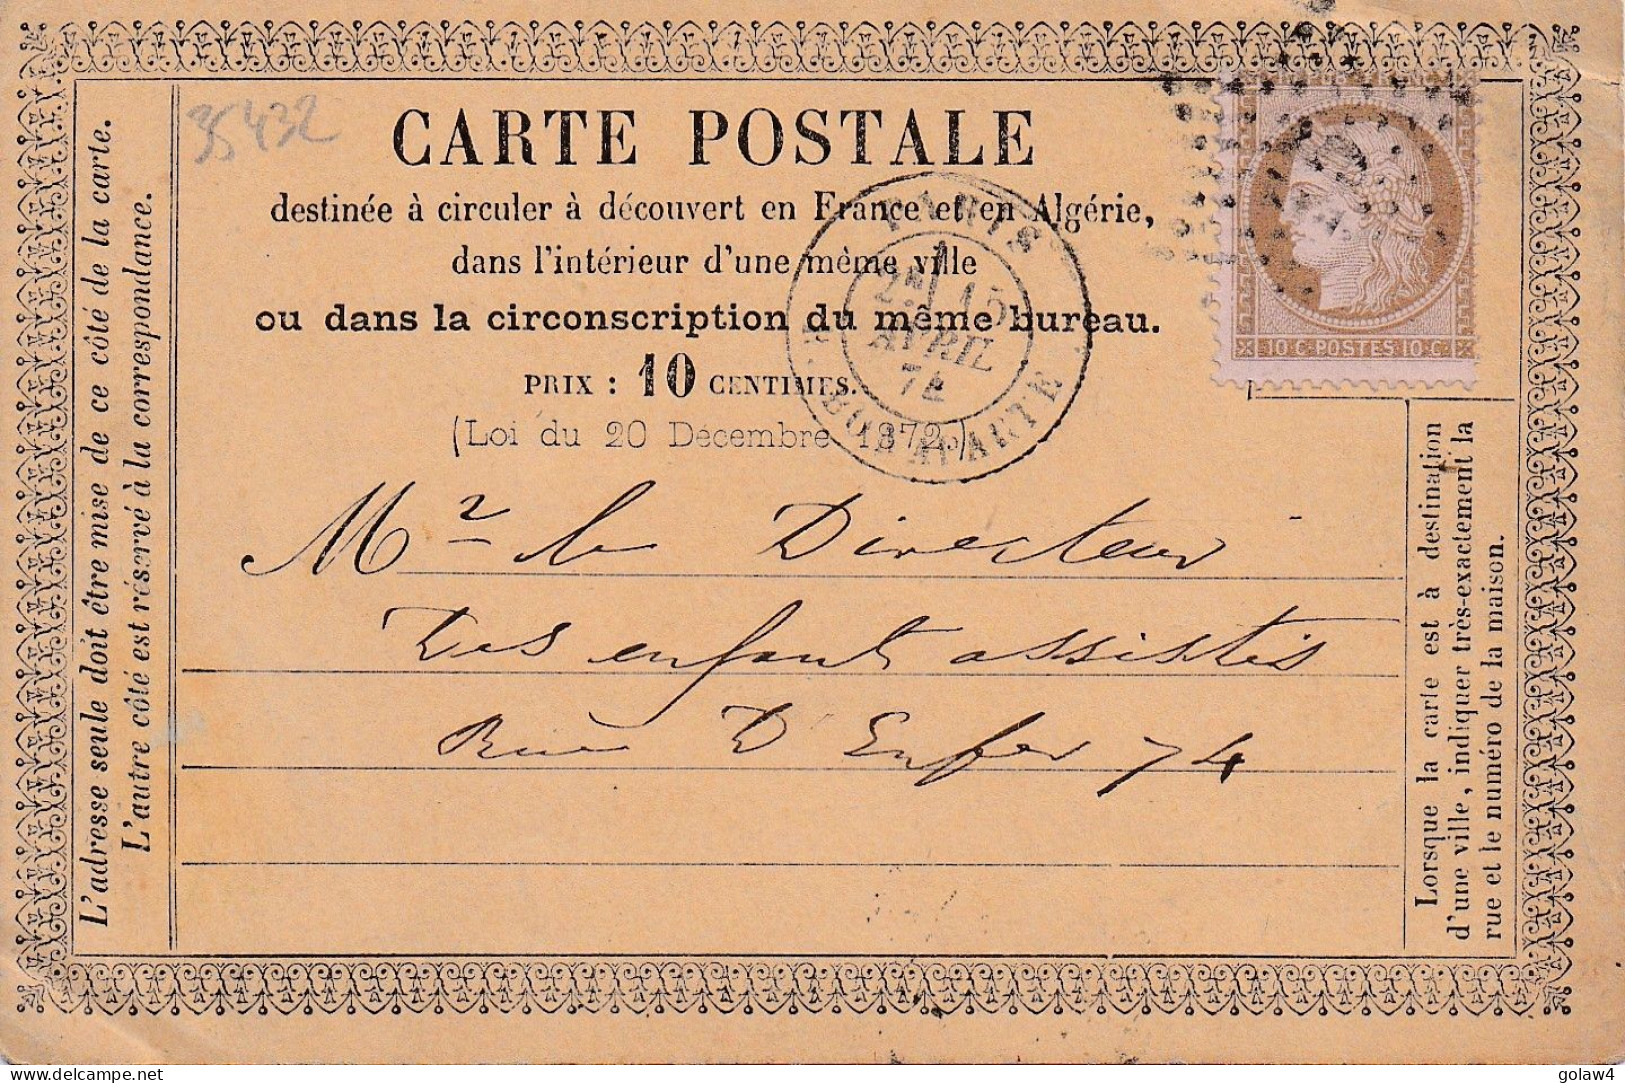 35432
CARTE POSTALE
destinée à circuler à découvert en France et en Algérie,
dans l'intérieur d'une même ville
ou dans la circonscription du même bureau.
PRIX : 10 CENTIMES.
(Loi du 20 Décembre 1872.)
PARIS
2E 15
AVRIL
74
BONAPARTE
10·C·POSTES·10·C·
L'adresse seule doit être mise de ce côté de la carte.
L'autre côté est réservé à la correspondance.
Mr le Directeur
Des enfant assistés
Rue D'Enfer 74
Lorsque la carte est à destination
d'une ville, indiquer très-exactement la
rue et le numéro de la maison.
www.delcampe.net
golaw4